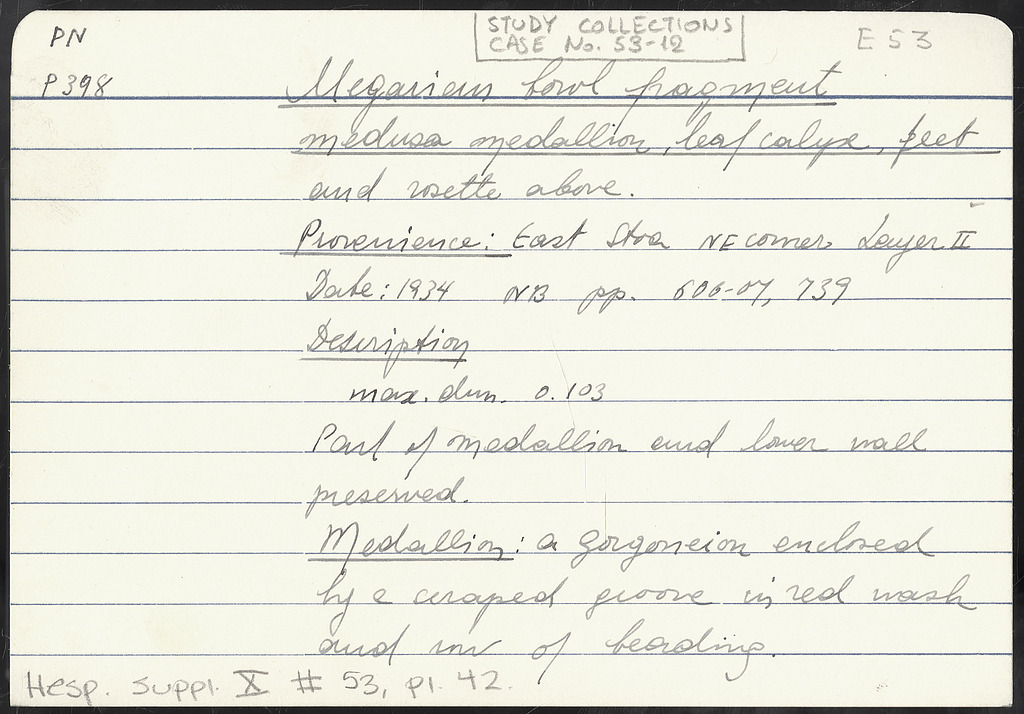 PN
STUDY COLLECTIONS
CASE No. 53-12
E 53
P 398
Megarian bowl fragment
medusa medallion, leaf calyx, feet
and rosette above.
Provenience: East Stoa NE corner Layer II
Date: 1934 NB pp. 606-07, 739
Description
max. dim. 0.103
Part of medallion and lower wall
preserved.
Medallion: a gorgoneion enclosed
by a scraped groove in red wash
and row of beading.
Hesp. Suppl. X # 53, pl. 42.